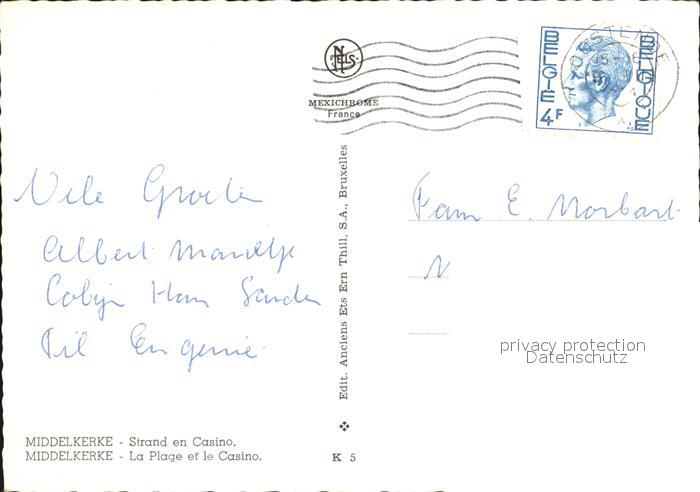 Vele Groeten
Albert Marietje
Colijn Han Sander
Pil Eugenie
MIDDELKERKE - Strand en Casino.
MIDDELKERKE - La Plage et le Casino.
NELS
MEXICHROME
France
Edit. Anciens Ets Ern Thill, S.A., Bruxelles
K 5
BELGIE 4F
BELGIQUE
OOSTENDE
Fam E. Morbart
privacy protection
Datenschutz